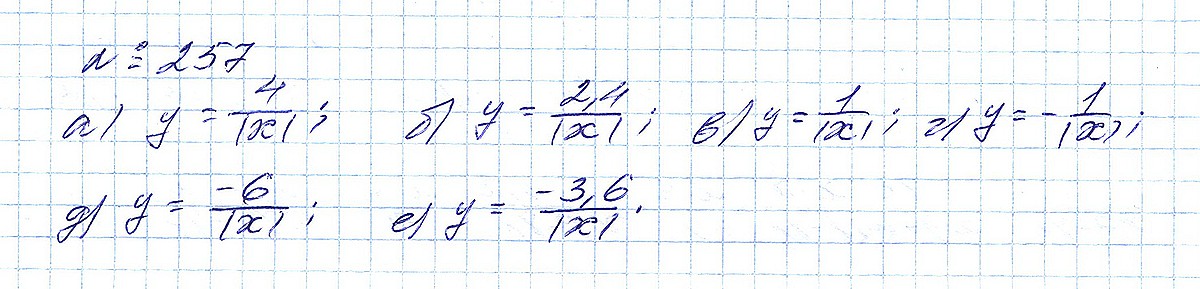 № 257
а) y = 4/|x|; б) y = 2,4/|x|; в) y = 1/|x|; г) y = -1/|x|;
д) y = -6/|x|; е) y = -3,6/|x|.